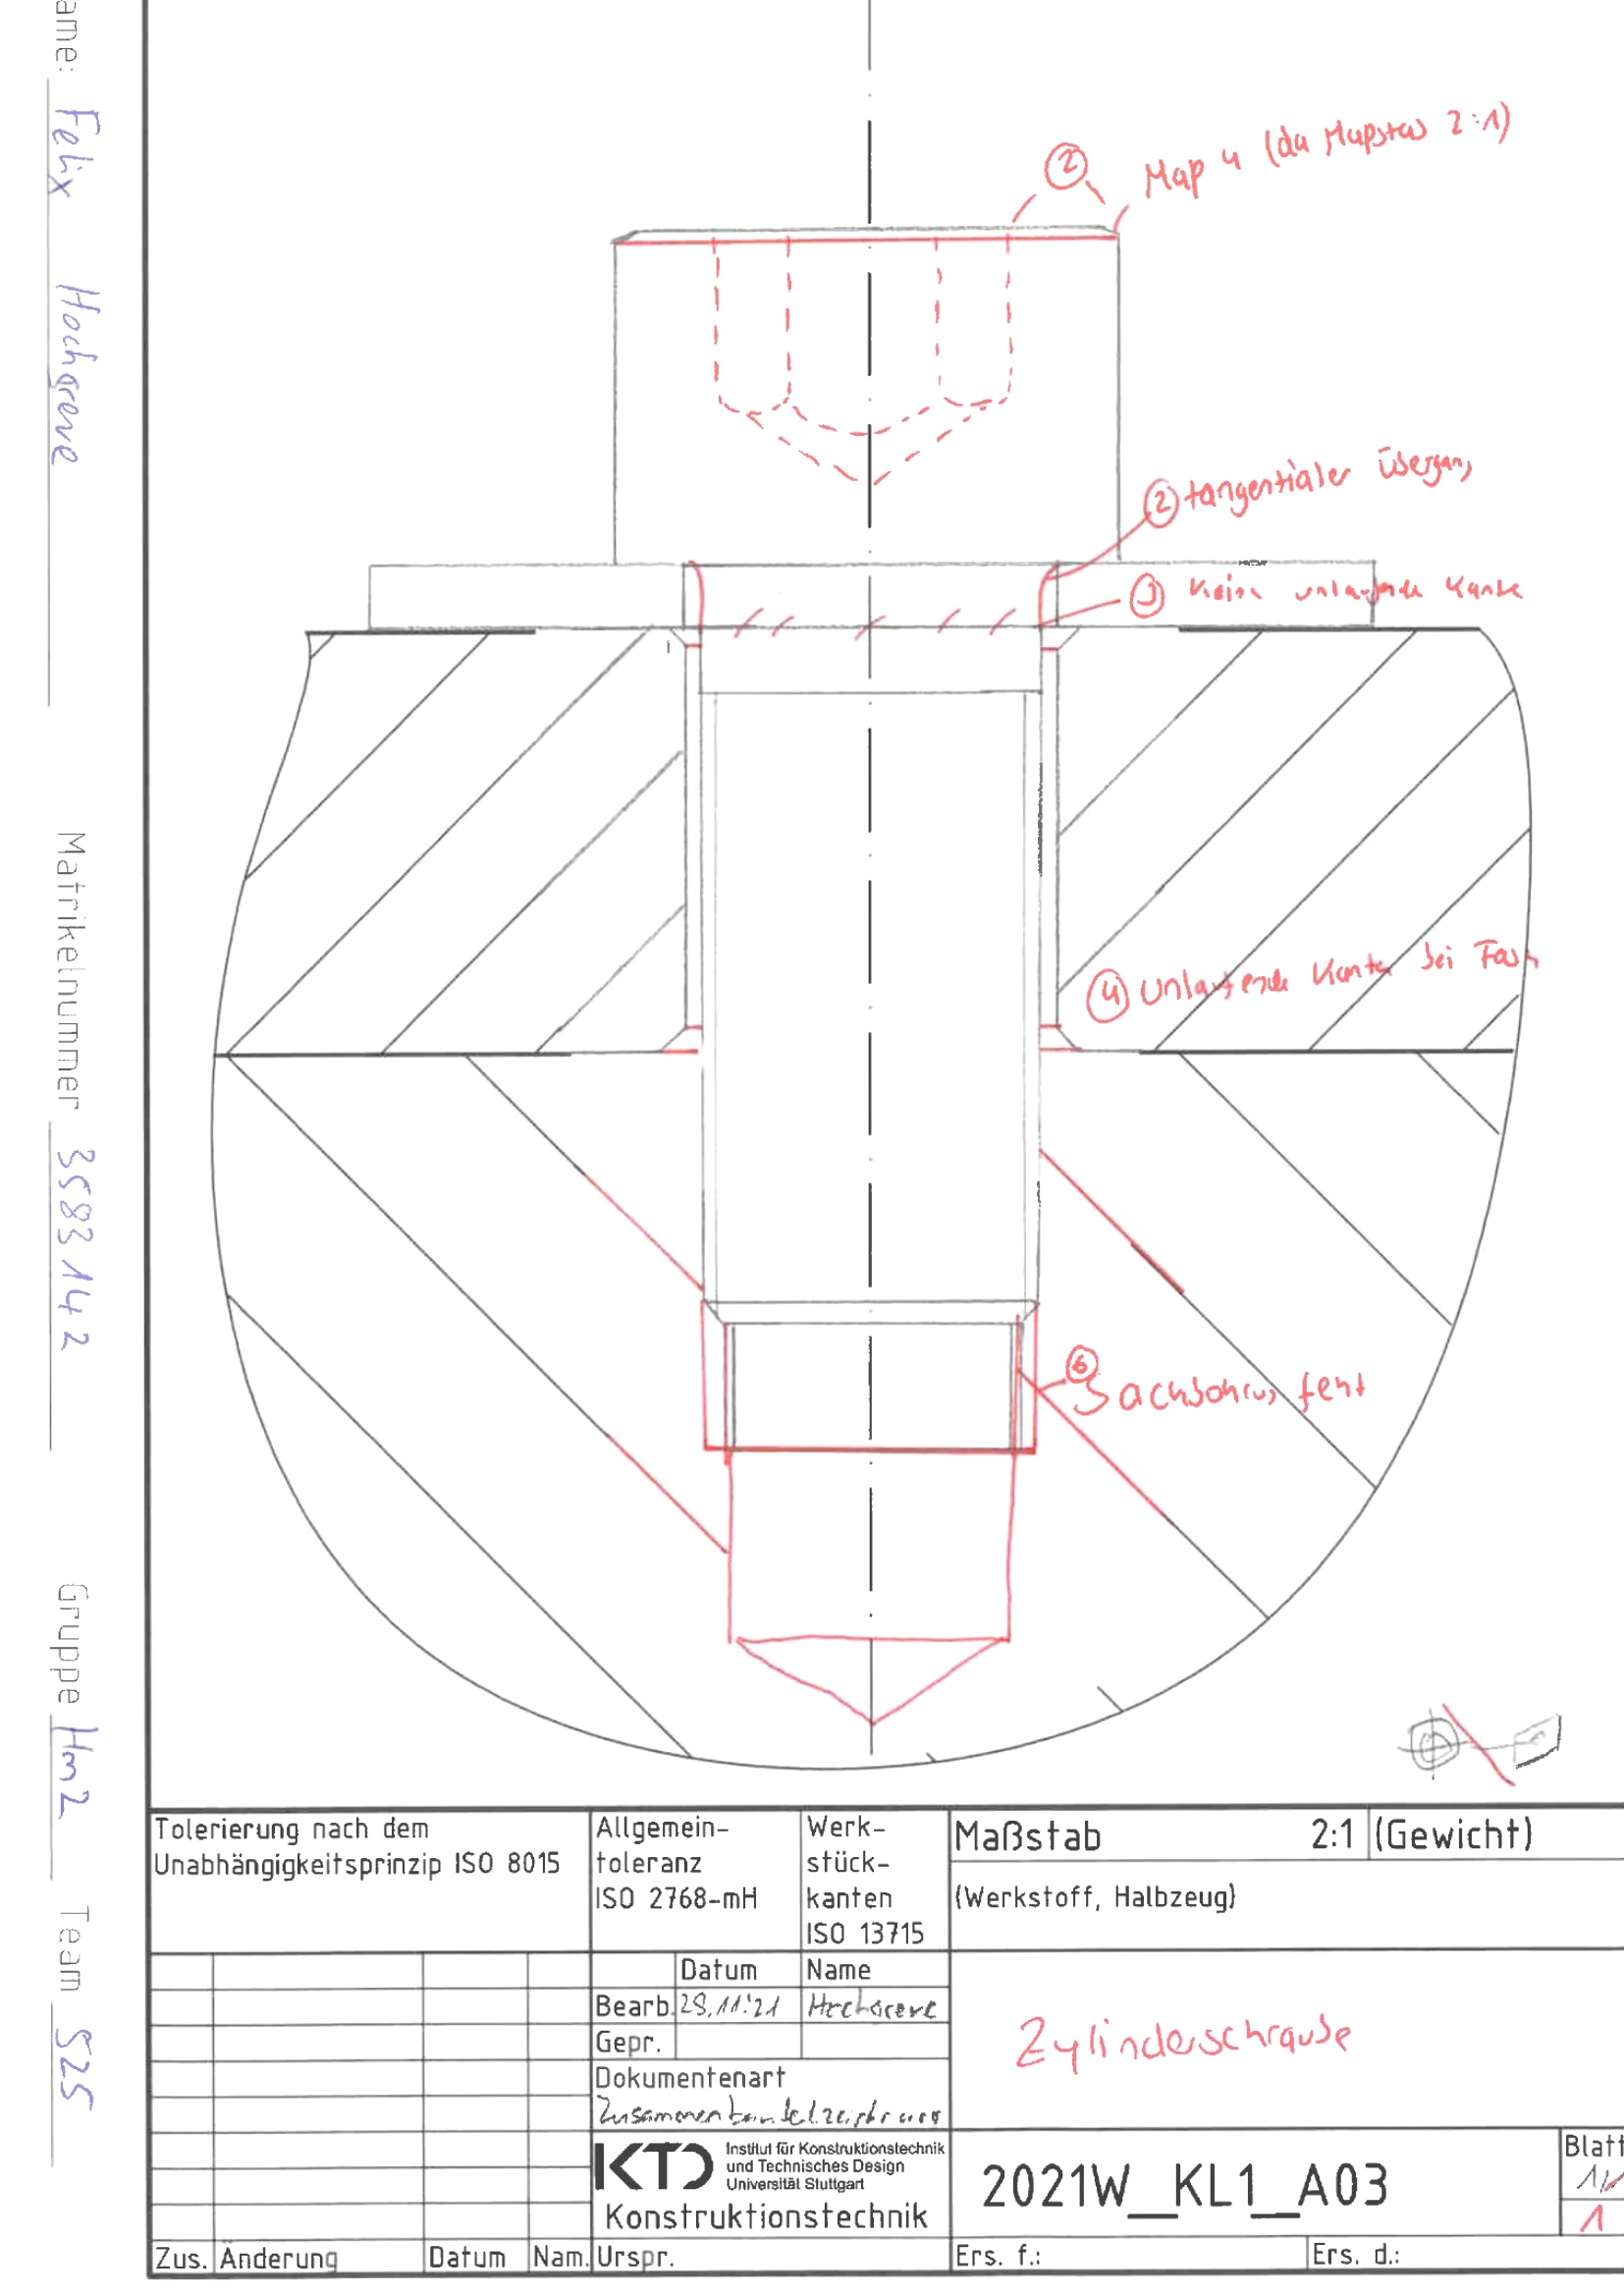 ame: Felix Hochgreve
Matrikelnummer 3583142
Gruppe Hm2 Team 525
② Map 4 (da Mapstab 2:1)
② tangentialer Übergang
③ Keine umlaufende Kante
④ Umlaufende Kante bei Fas
⑥ Sachbohrung fehlt
Tolerierung nach dem
Unabhängigkeitsprinzip ISO 8015
Allgemein-
toleranz
ISO 2768-mH
Werk-
stück-
kanten
ISO 13715
Maßstab 2:1 (Gewicht)
(Werkstoff, Halbzeug)
Datum Name
Bearb. 29.11.'21 Hochgreve
Gepr.
Dokumentenart
Zylinderschraube
KTD Institut für Konstruktionstechnik
und Technisches Design
Universität Stuttgart
Konstruktionstechnik
2021W_KL1_A03
Blatt
1
1
Zus. Änderung Datum Nam. Urspr. Ers. f.: Ers. d.: